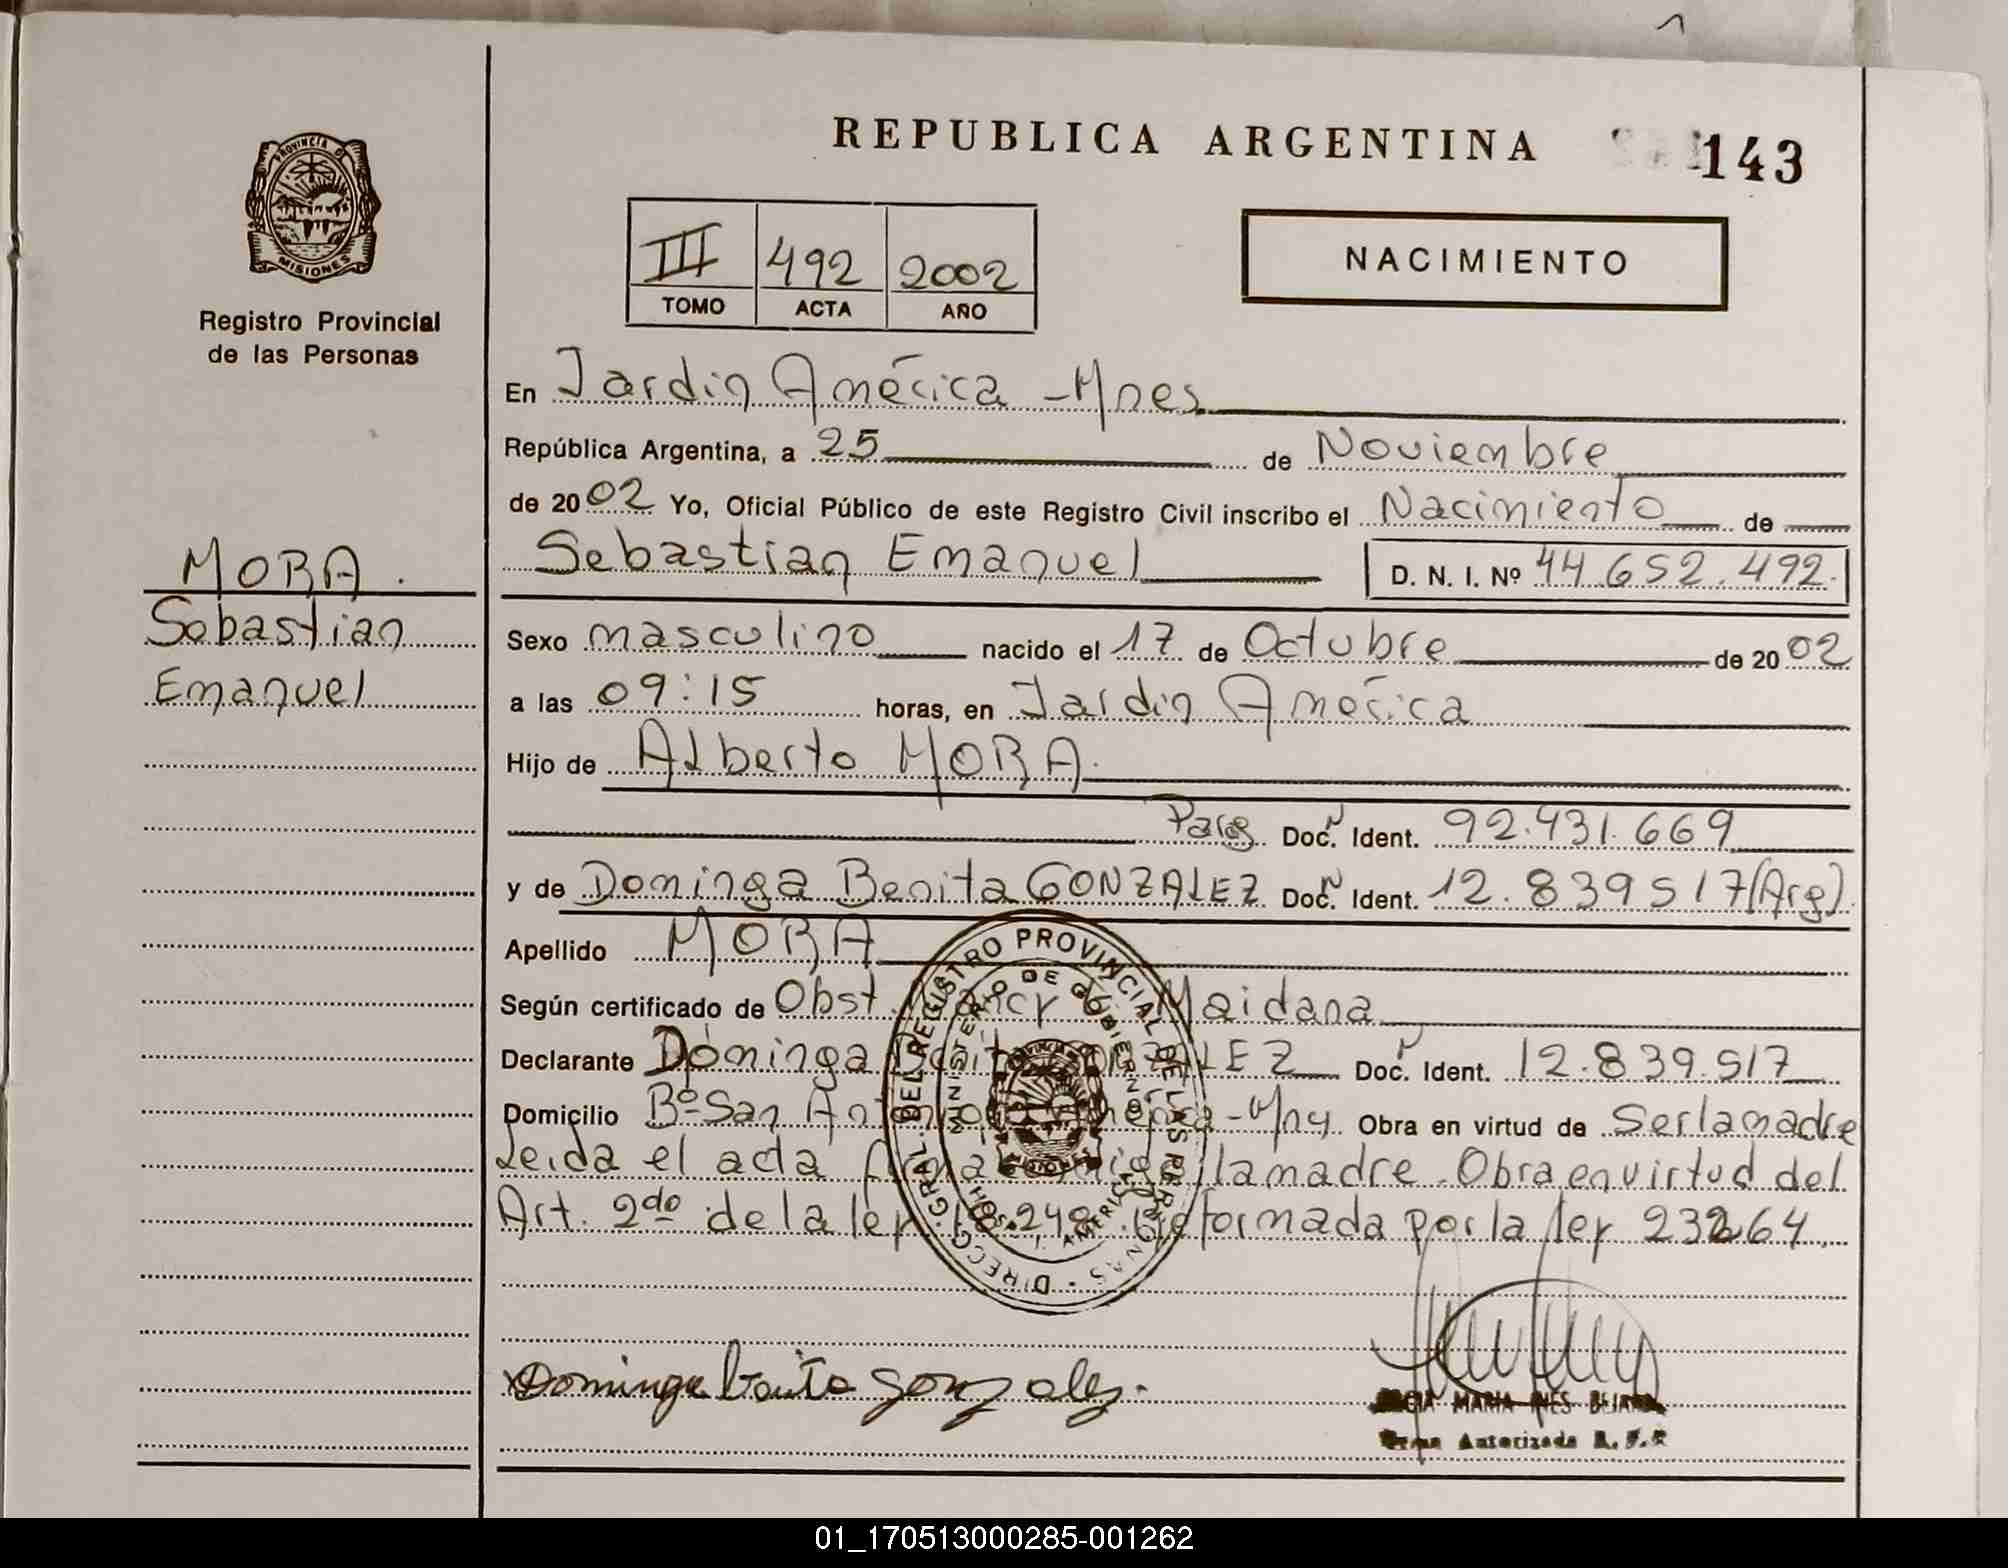 REPUBLICA ARGENTINA
143
PROVINCIA DE
MISIONES
Registro Provincial
de las Personas
III 492 2002
TOMO ACTA AÑO
NACIMIENTO
MORA.
Sebastian
Emanuel
En Jardin América - Mnes
República Argentina, a 25 de Noviembre
de 2002 Yo, Oficial Público de este Registro Civil inscribo el Nacimiento de
Sebastian Emanuel D. N. I. Nº 44.652.492.
Sexo masculino nacido el 17 de Octubre de 2002
a las 09:15 horas, en Jardin América
Hijo de Alberto MORA.
Doc. Ident. 92.431.669
y de Dominga Benita GONZALEZ Doc. Ident. 12.839517 (Arg).
Apellido MORA
Según certificado de Obst. Maidana
Declarante Dominga GONZALEZ Doc. Ident. 12.839.517
Domicilio Bº San Obra en virtud de Ser la madre
Leida el acta la madre. Obra en virtud del
Art. 2do de la ley 18.248. Reformada por la ley 23264.
DIRECC. GRAL. DEL REGISTRO PROVINCIAL DE LAS PERSONAS
MINISTERIO DE GOBIERNO
Dominga Benita Gonzalez.
MARIA INES
Autorizada R. P. P.
01_170513000285-001262